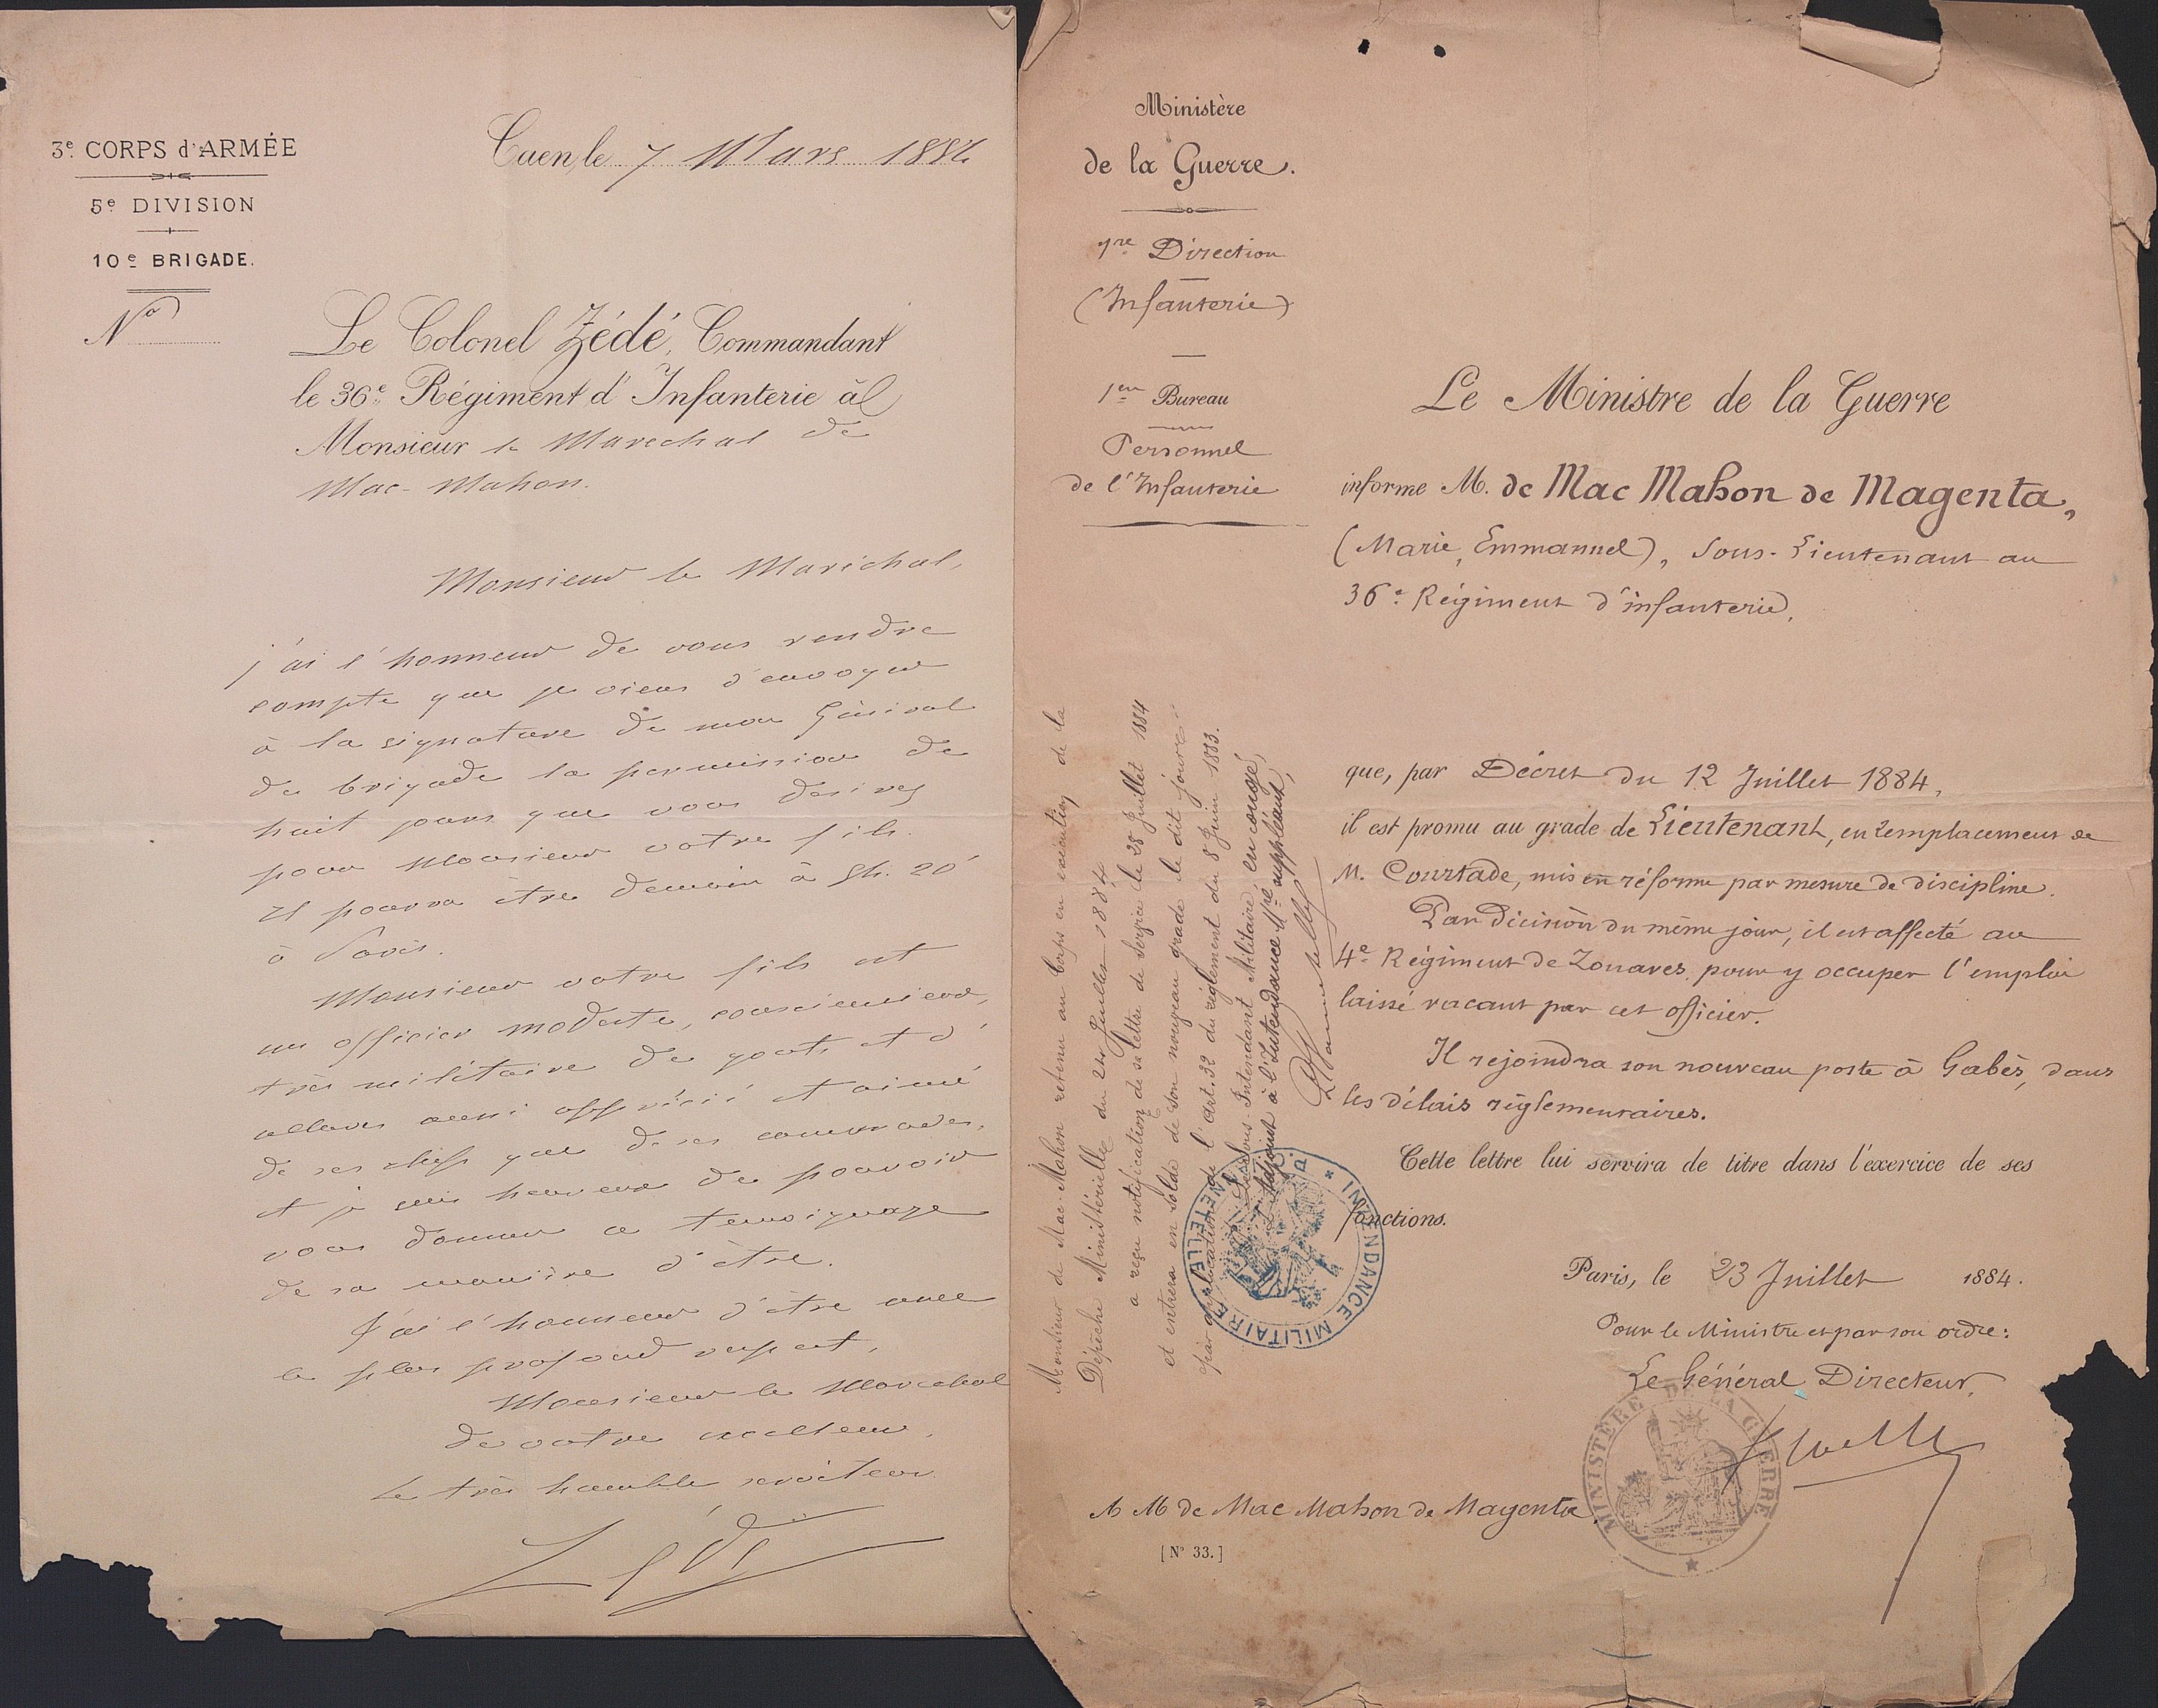 3e. CORPS d'ARMÉE
5e DIVISION
10e BRIGADE.
No
Caen, le 7 Mars 1884
Le Colonel Zédé, Commandant
le 36e. Régiment d'Infanterie à
Monsieur le Marechal de
Mac-Mahon.
Monsieur le Maréchal,
j'ai l'honneur de vous rendre
compte que je viens d'envoyer
à la signature de mon Général
de brigade la permission de
huit jours que vous desirez
pour Monsieur votre fils.
Il pourra être demain à 5h. 20
à Paris.
Monsieur votre fils est
un officier modeste, consciencieux,
très militaire de gouts et d'
allures aussi apprécié et aimé
de ses chefs que de ses camarades,
et je suis heureux de pouvoir
vous donner ce temoignage
de sa manière d'être.
J'ai l'honneur d'être avec
le plus profond respect,
Monsieur le Marechal
de votre excellence,
Le très humble serviteur
Zédé
Ministère
de la Guerre.
1re Direction
(Infanterie)
1er Bureau
Personnel
de l'Infanterie
Le Ministre de la Guerre
informe M. de Mac Mahon de Magenta,
(Marie, Emmanuel), Sous-Lieutenant au
36e. Régiment d'infanterie,
que, par Décret du 12 Juillet 1884,
il est promu au grade de Lieutenant, en remplacement de
M. Courtade, mis en réforme par mesure de discipline.
Par décision du même jour, il est affecté au
4e Régiment de Zouaves, pour y occuper l'emploi
laissé vacant par cet officier.
Il rejoindra son nouveau poste à Gabès, dans
les délais réglementaires.
Cette lettre lui servira de titre dans l'exercice de ses
fonctions.
Paris, le 23 Juillet 1884.
Pour le Ministre et par son ordre:
Le Général Directeur,
MINISTÈRE DE LA GUERRE
A M de Mac Mahon de Magenta
[No 33.]
Monsieur de Mac-Mahon retenu au Corps en exécution de la
Dépêche Ministérielle du 24 Juillet 1884
a reçu notification de sa lettre de Service le 28 Juillet 1884
et entrera en solde de son nouveau grade le dit jour
par application de l'art. 32 du règlement du 8 Juin 1883.
Le Sous Intendant Militaire en congé,
L'Adjoint à l'Intendance Mre suppléant,
INTENDANCE MILITAIRE